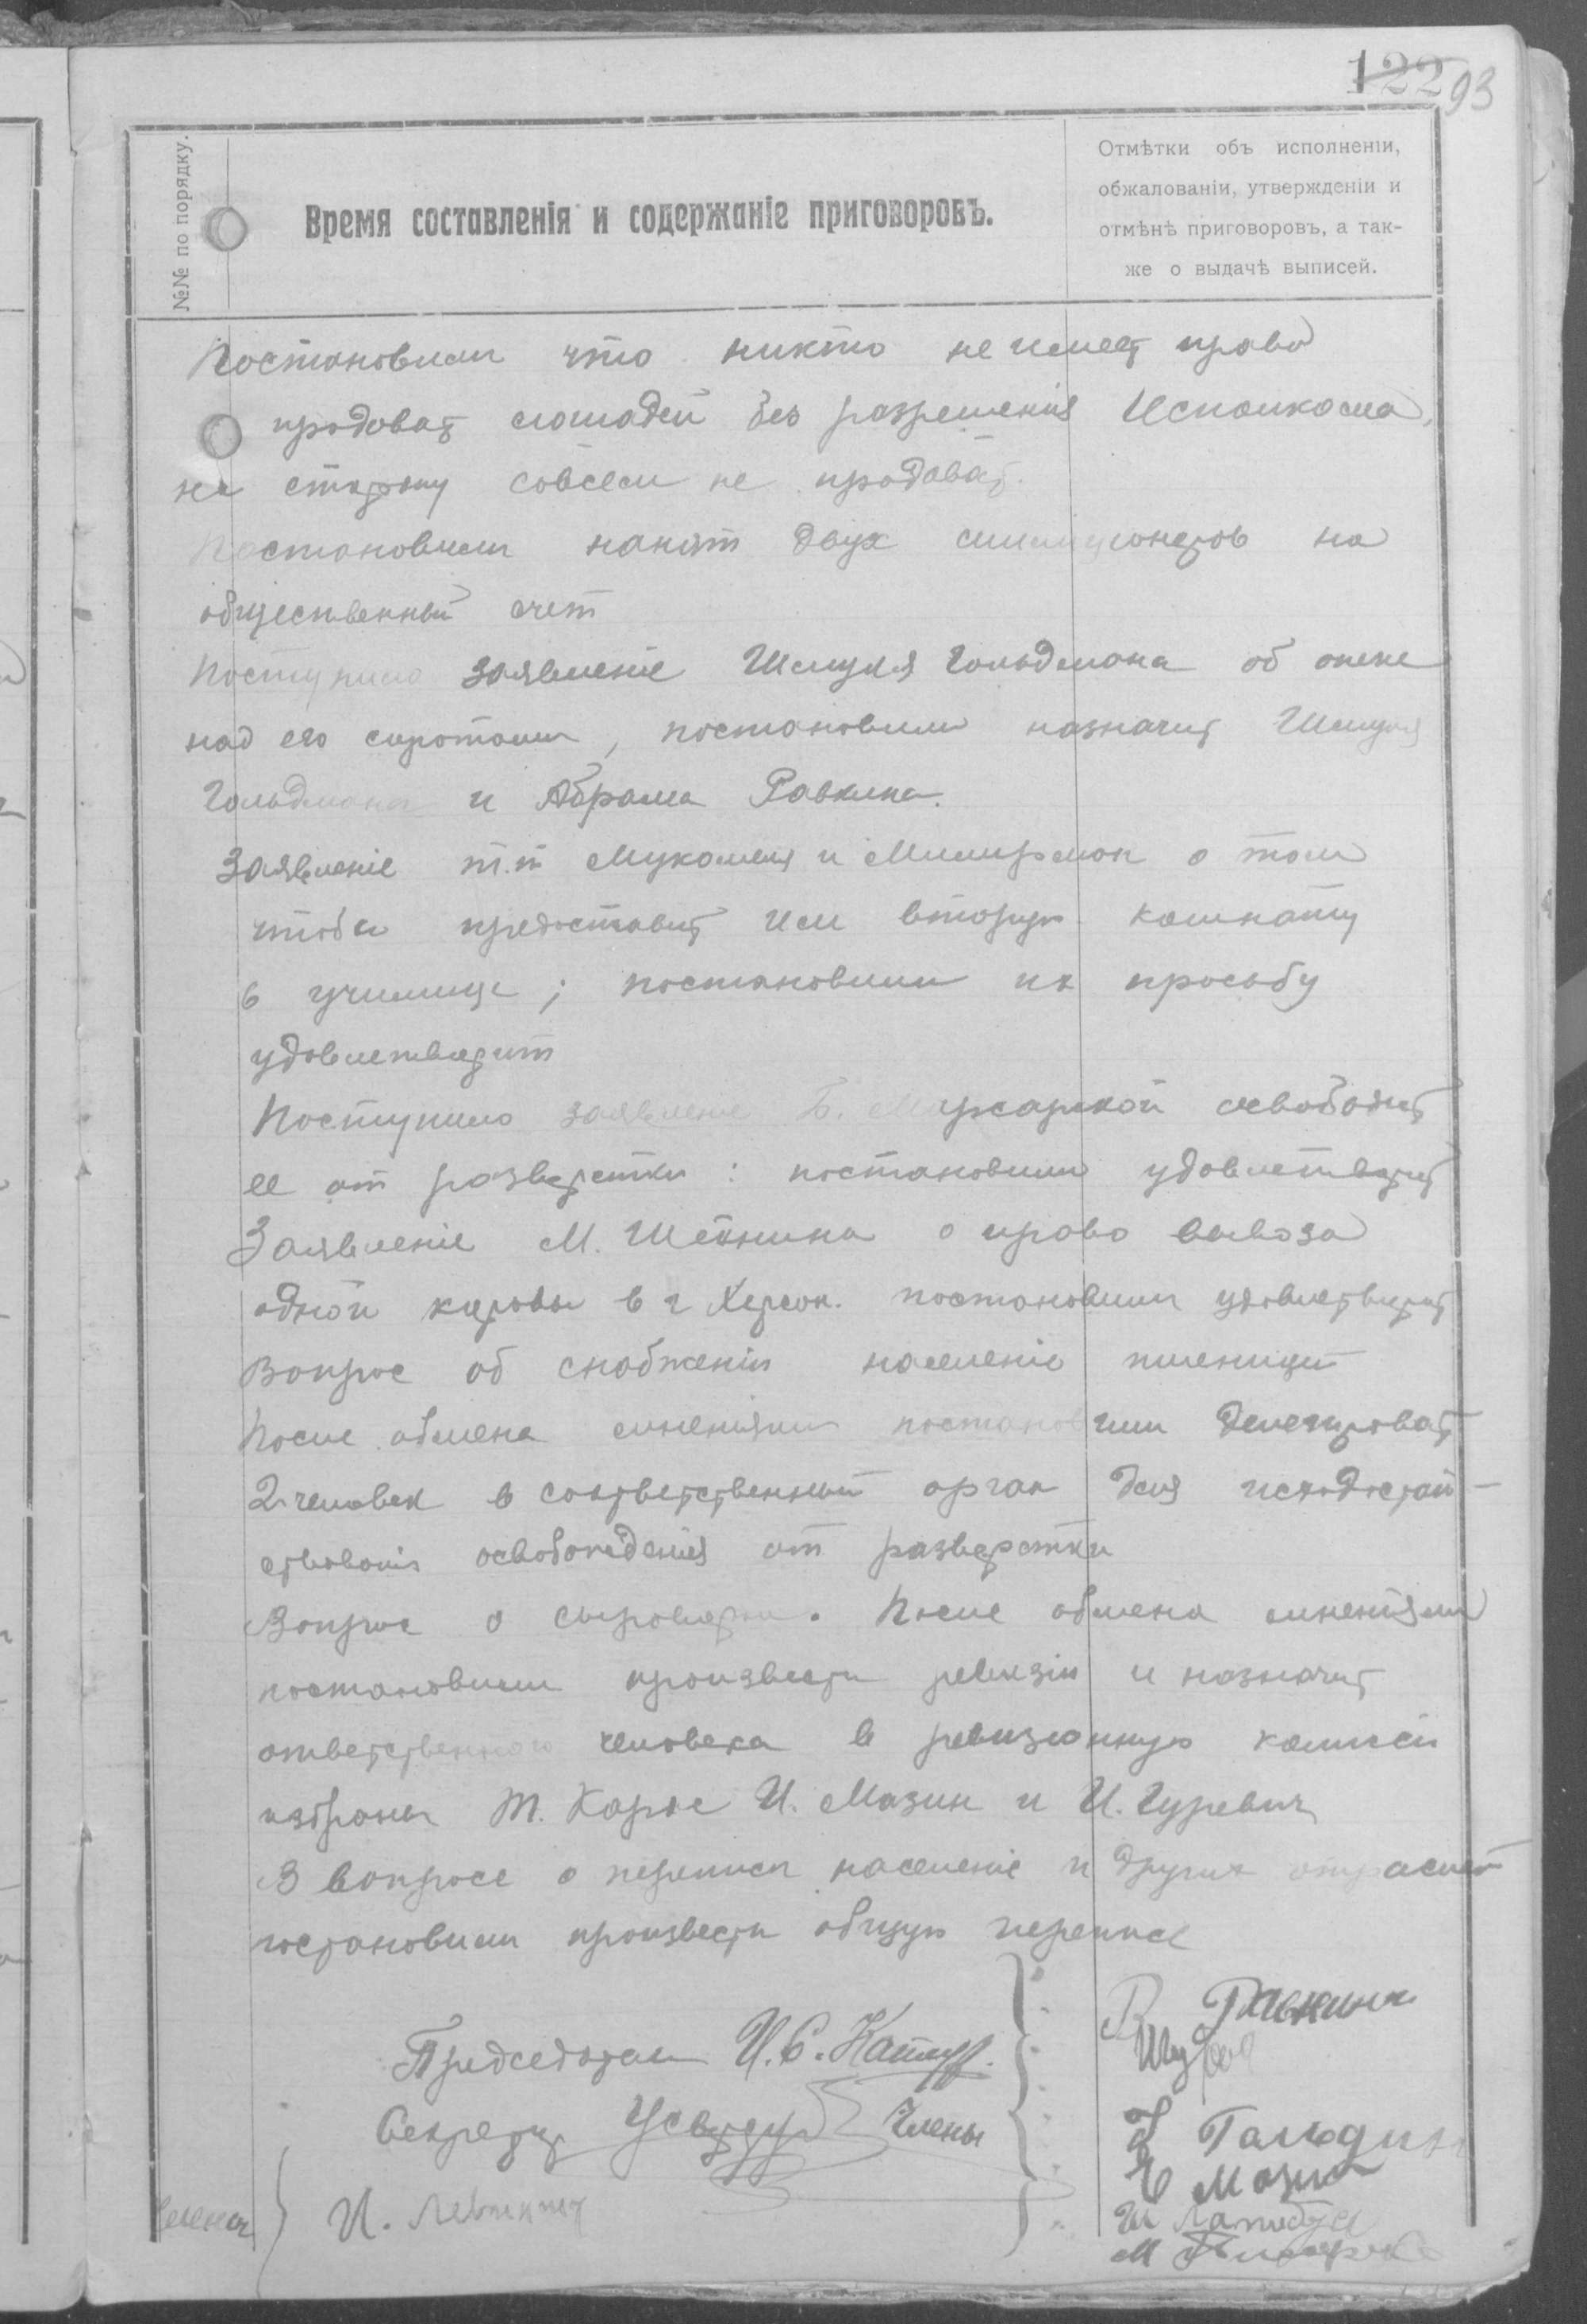 122 93
№№ по порядку.
Время составленія и содержаніе приговоровъ.
Отмѣтки объ исполненіи,
обжалованіи, утвержденіи и
отмѣнѣ приговоровъ, а так-
же о выдачѣ выписей.
Постановили что никто не имеет право
продоват лошадей без разрешения Исполкома,
на сторону совсем не продоват.
Постановили нанят двух милиционеров на
общественный счет
Поступило заявление Шмуля Гольдмана об опеке
над его сиротами, постановили назначит Шмуля
Гольдмана и Абрама Равкина.
Заявленіе т.т и о том
чтобы предоставит им вторую комнату
в училище; постановили их просьбу
удовлетворит
Поступило заявление Б. освободит
ее от разверстки: постановили удовлетворит
Заявленіе М. о право вывоза
одной коровы в г Херсон. постановили удовлетворит
Вопрос об снабженіи населеніе пшеницей
После обмена мненіями постановили делегироват
2 человек в соответственный орган для исходотай-
ствованія освобожденія от разверстки
Вопрос о сыроварни. После обмена мненіями
постановили произвести ревизію и назначит
ответственного человека в ревизионную комисси
избраны т. Карпе И. Мазин и И. Гуревич
В вопросе о переписи населеніе и других отраслей
постановили произвести общую перепис
Председатель И. С.
Секретар Члены
В Равкин
И Мазин
Члены И.
М